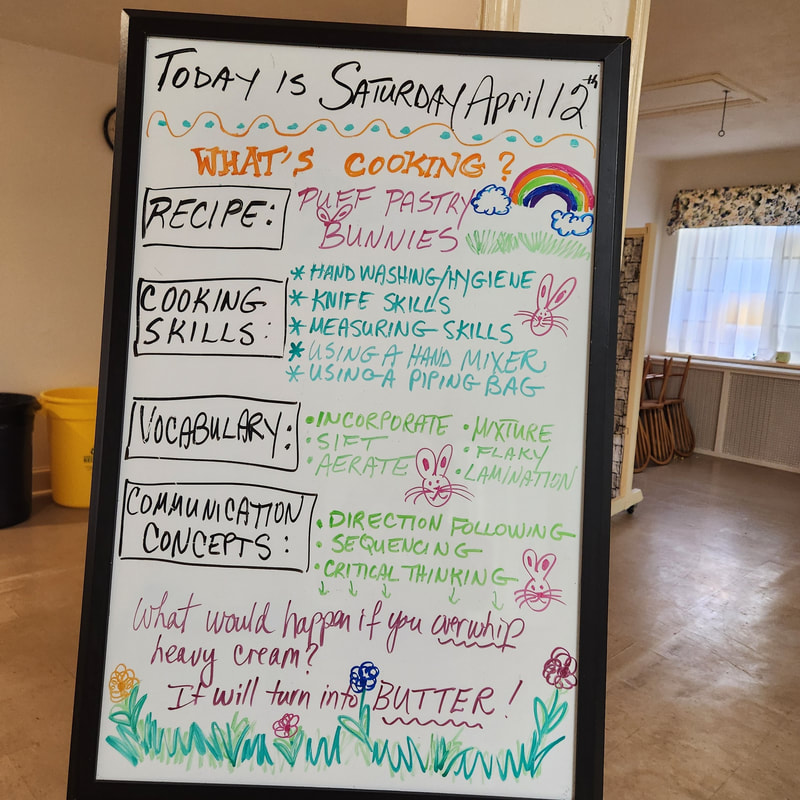 TODAY IS SATURDAY April 12th
WHAT'S COOKING?
RECIPE:
PUFF PASTRY
BUNNIES
COOKING
SKILLS:
* HAND WASHING/HYGIENE
* KNIFE SKILLS
* MEASURING SKILLS
* USING A HAND MIXER
* USING A PIPING BAG
VOCABULARY:
• INCORPORATE • MIXTURE
• SIFT • FLAKY
• AERATE • LAMINATION
COMMUNICATION
CONCEPTS:
• DIRECTION FOLLOWING
• SEQUENCING
• CRITICAL THINKING
What would happen if you overwhip
heavy cream?
It will turn into BUTTER!